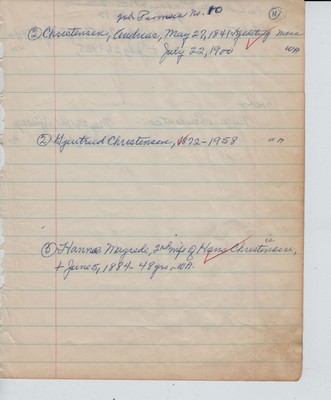 No. 10
11
② Christensen, Andreas, May 27, 1841
July 22, 1900 WA
② Gjertrud Christensen, 1872-1958 WA
⑤ Hanna Magrede, 2nd wife of Hans Christensen,
+ June 5, 1884 - 48 yrs - WA.